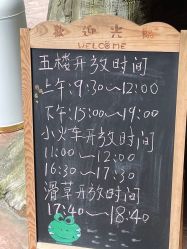 欢迎光临
WELCOME
五楼开放时间
上午:9:30~12:00
下午:15:00~19:00
小火车开放时间
11:00~12:00
16:30~17:30
滑草开放时间
17:40~18:40